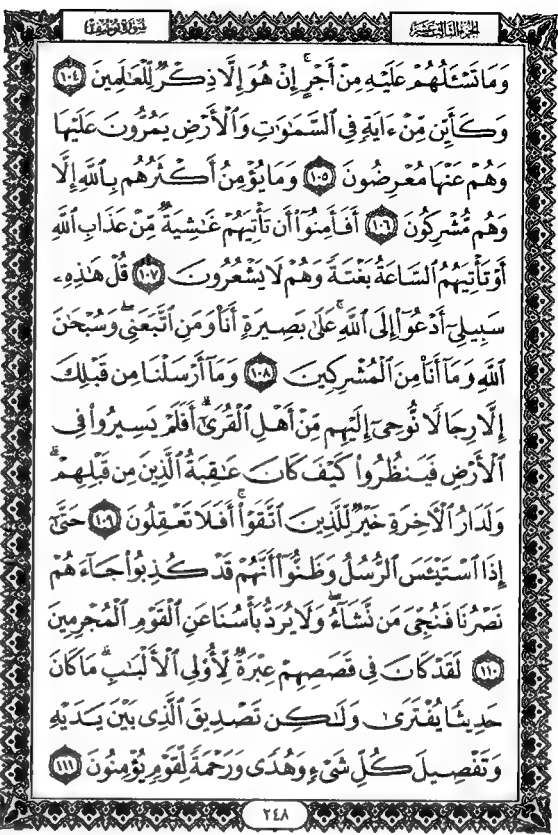 سُورَةُ يُوسُفَ
الجُزْءُ الثَّالِثَ عَشَرَ
وَمَا تَسْـَٔلُهُمْ عَلَيْهِ مِنْ أَجْرٍۚ إِنْ هُوَ إِلَّا ذِكْرٌ لِّلْعَٰلَمِينَ ١٠٤
وَكَأَيِّن مِّنْ ءَايَةٍ فِى ٱلسَّمَٰوَٰتِ وَٱلْأَرْضِ يَمُرُّونَ عَلَيْهَا
وَهُمْ عَنْهَا مُعْرِضُونَ ١٠٥ وَمَا يُؤْمِنُ أَكْثَرُهُم بِٱللَّهِ إِلَّا
وَهُم مُّشْرِكُونَ ١٠٦ أَفَأَمِنُوٓا۟ أَن تَأْتِيَهُمْ غَٰشِيَةٌ مِّنْ عَذَابِ ٱللَّهِ
أَوْ تَأْتِيَهُمُ ٱلسَّاعَةُ بَغْتَةً وَهُمْ لَا يَشْعُرُونَ ١٠٧ قُلْ هَٰذِهِۦ
سَبِيلِىٓ أَدْعُوٓا۟ إِلَى ٱللَّهِۚ عَلَىٰ بَصِيرَةٍ أَنَا۠ وَمَنِ ٱتَّبَعَنِىۖ وَسُبْحَٰنَ
ٱللَّهِ وَمَآ أَنَا۠ مِنَ ٱلْمُشْرِكِينَ ١٠٨ وَمَآ أَرْسَلْنَا مِن قَبْلِكَ
إِلَّا رِجَالًا نُّوحِىٓ إِلَيْهِم مِّنْ أَهْلِ ٱلْقُرَىٰٓۗ أَفَلَمْ يَسِيرُوا۟ فِى
ٱلْأَرْضِ فَيَنظُرُوا۟ كَيْفَ كَانَ عَٰقِبَةُ ٱلَّذِينَ مِن قَبْلِهِمْۗ
وَلَدَارُ ٱلْءَاخِرَةِ خَيْرٌ لِّلَّذِينَ ٱتَّقَوْا۟ۚ أَفَلَا تَعْقِلُونَ ١٠٩ حَتَّىٰٓ
إِذَا ٱسْتَيْـَٔسَ ٱلرُّسُلُ وَظَنُّوٓا۟ أَنَّهُمْ قَدْ كُذِبُوا۟ جَآءَهُمْ
نَصْرُنَا فَنُجِّىَ مَن نَّشَآءُۖ وَلَا يُرَدُّ بَأْسُنَا عَنِ ٱلْقَوْمِ ٱلْمُجْرِمِينَ
١١٠ لَقَدْ كَانَ فِى قَصَصِهِمْ عِبْرَةٌ لِّأُو۟لِى ٱلْأَلْبَٰبِۗ مَا كَانَ
حَدِيثًا يُفْتَرَىٰ وَلَٰكِن تَصْدِيقَ ٱلَّذِى بَيْنَ يَدَيْهِ
وَتَفْصِيلَ كُلِّ شَىْءٍ وَهُدًى وَرَحْمَةً لِّقَوْمٍ يُؤْمِنُونَ ١١١
٢٤٨